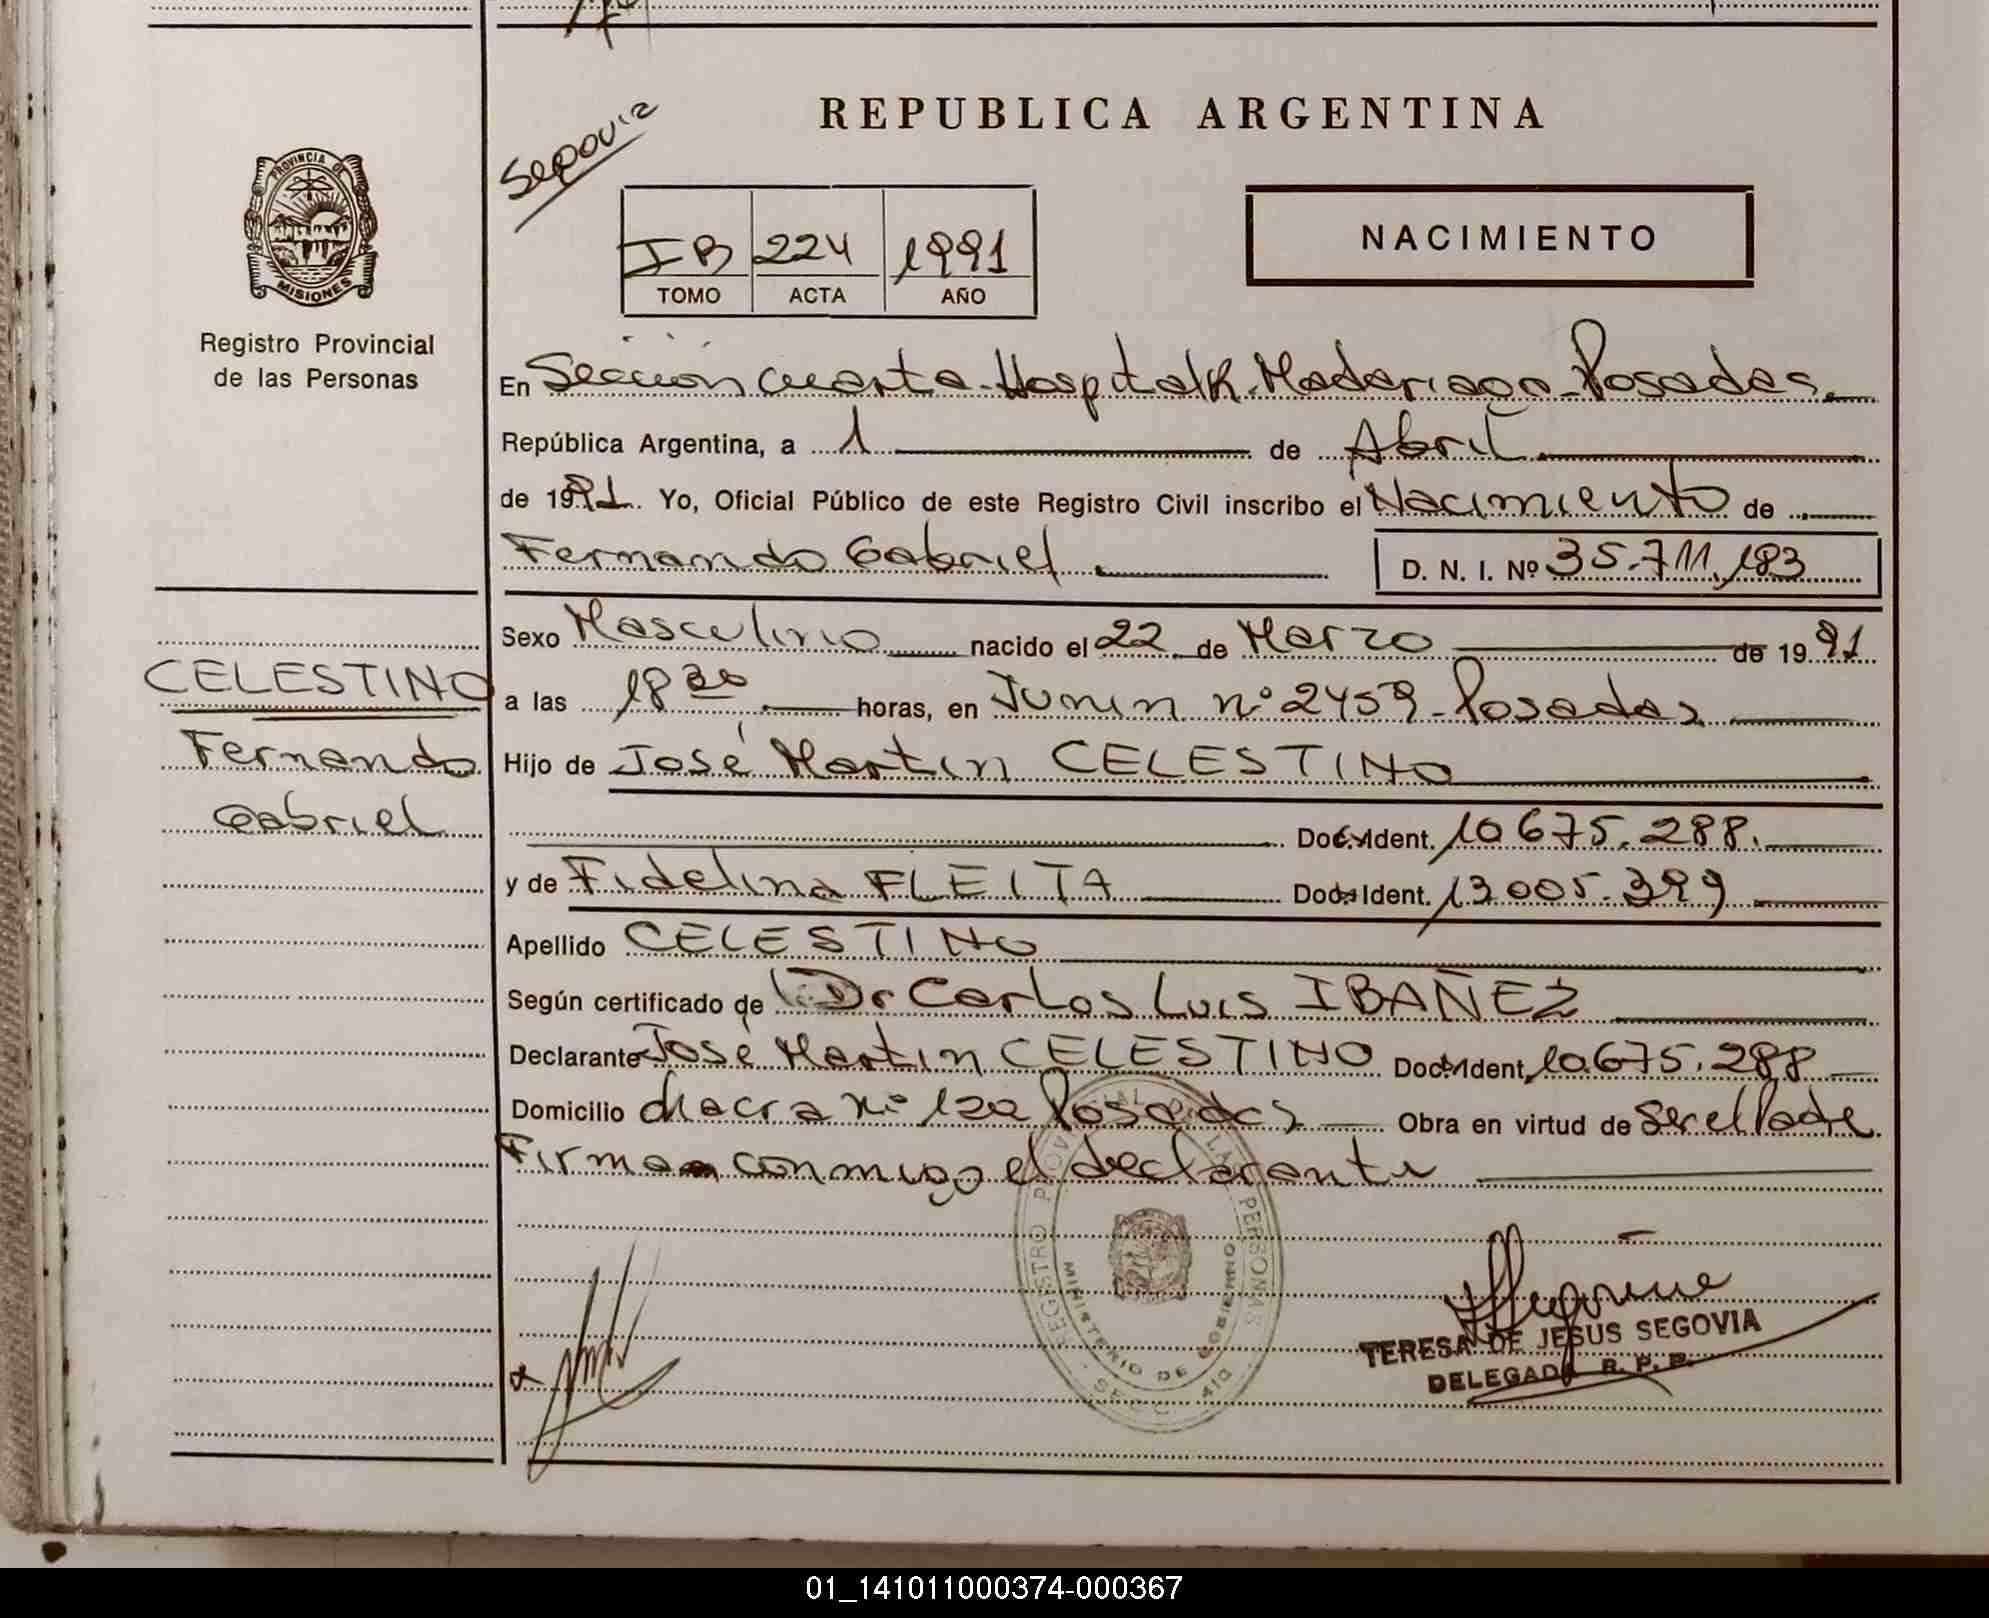 REPUBLICA ARGENTINA
Segovia
NACIMIENTO
IB 224 1991
TOMO ACTA AÑO
PROVINCIA DE MISIONES
Registro Provincial
de las Personas
En Sección cuarta-Hospital R. Madariaga-Posadas
República Argentina, a 1 de Abril
de 1991. Yo, Oficial Público de este Registro Civil inscribo el Nacimiento de
Fernando Gabriel D. N. I. Nº 35.711.183
Sexo Masculino nacido el 22 de Marzo de 1991
CELESTINO
Fernando
Gabriel
a las 18 30 horas, en Junin nº 2459-Posadas
Hijo de José Martin CELESTINO
Doc. Ident. 10675.288.
y de Fidelina FLEITA Doc. Ident. 13005.399
Apellido CELESTINO
Según certificado de Dr Carlos Luis IBAÑEZ
Declarante José Martin CELESTINO Doc. Ident. 10.675.288
Domicilio chacra nº Posadas Obra en virtud de Ser el Padre
Firma conmigo el declarante
REGISTRO PROVINCIAL DE LAS PERSONAS
MINISTERIO DE GOBIERNO
TERESA DE JESUS SEGOVIA
DELEGADA R. P. P.
01_141011000374-000367